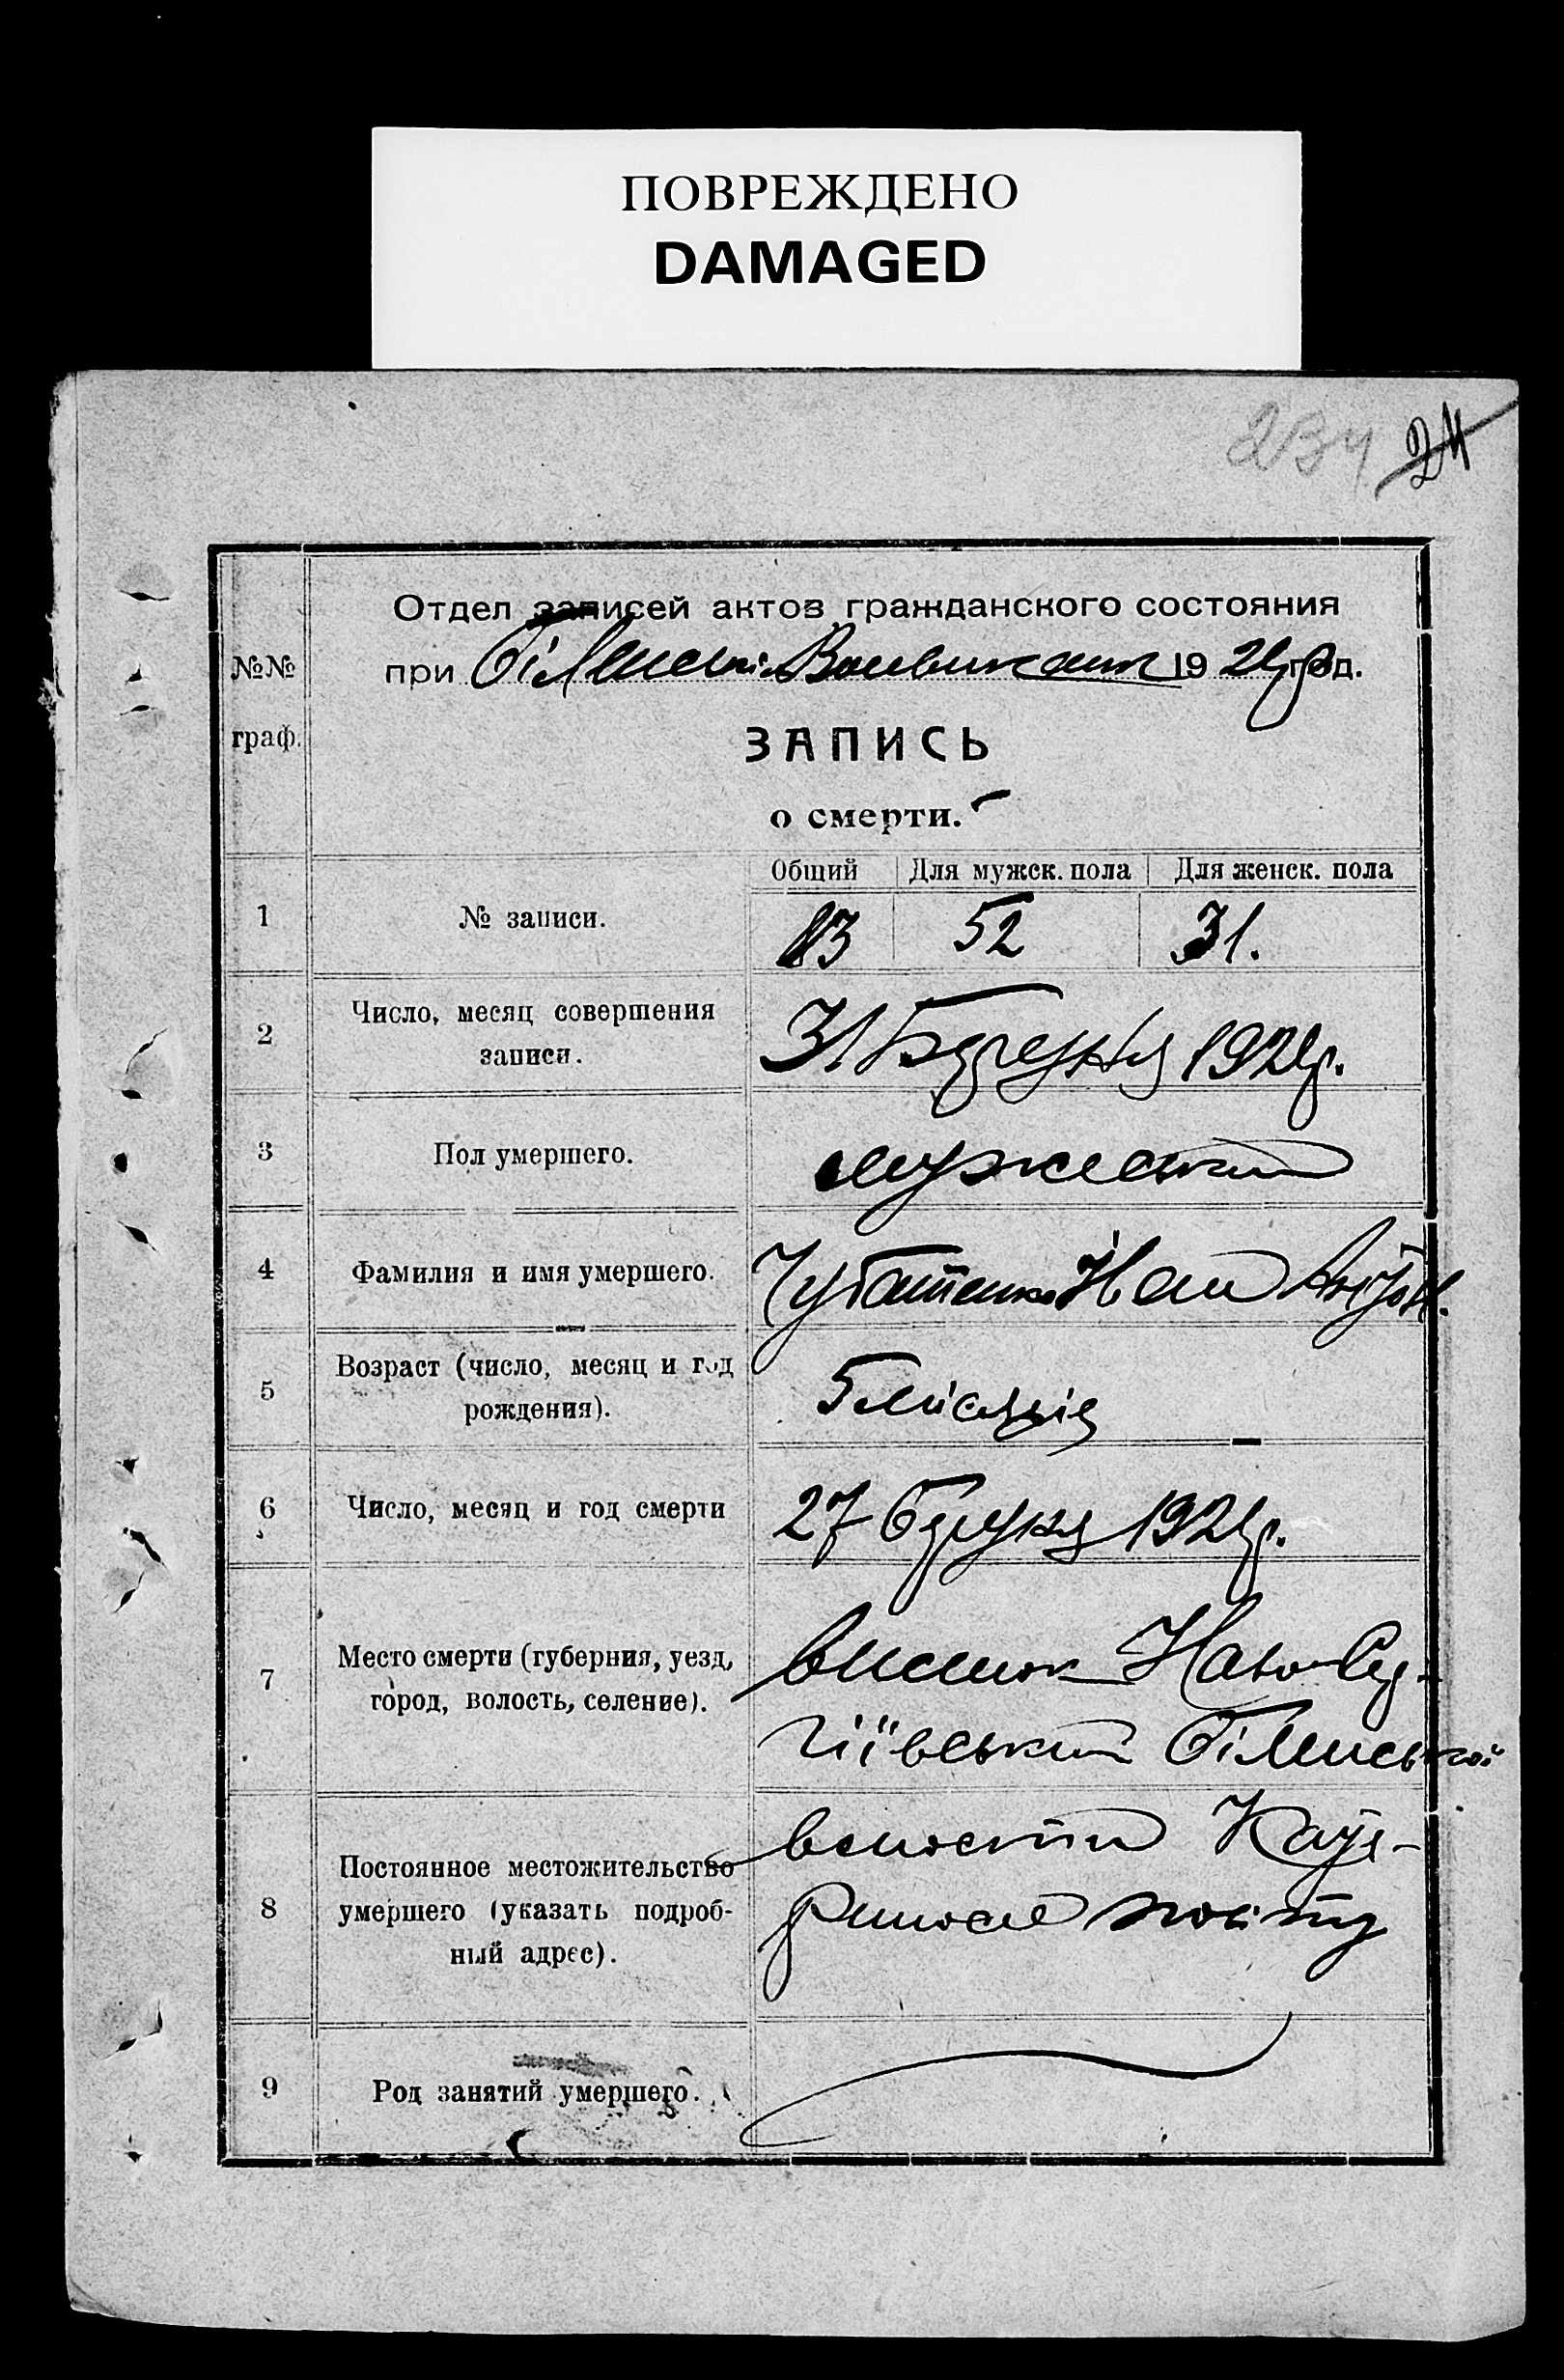 ПОВРЕЖДЕНО
DAMAGED
234 24
Отдел записей актов гражданского состояния
№№ при Білинськім Волвиконкомі 19 год.
граф.
ЗАПИСЬ
о смерти.
Общий Для мужск. пола Для женск. пола
1 № записи. 83 52 31.
2 Число, месяц совершения
записи. 31 192 р.
3 Пол умершего. мужеський
4 Фамилия и имя умершего. Чубатенко Іван Антон.
5 Возраст (число, месяц и год
рождения). 5 місяців
6 Число, месяц и год смерти 27 192 р.
7 Место смерти (губерния, уезд,
город, волость, селение). виселок Ново-Сер-
гіївський Білинської
8 Постоянное местожительство
умершего (указать подроб-
ный адрес). волости Кате-
повіту
9 Род занятий умершего.